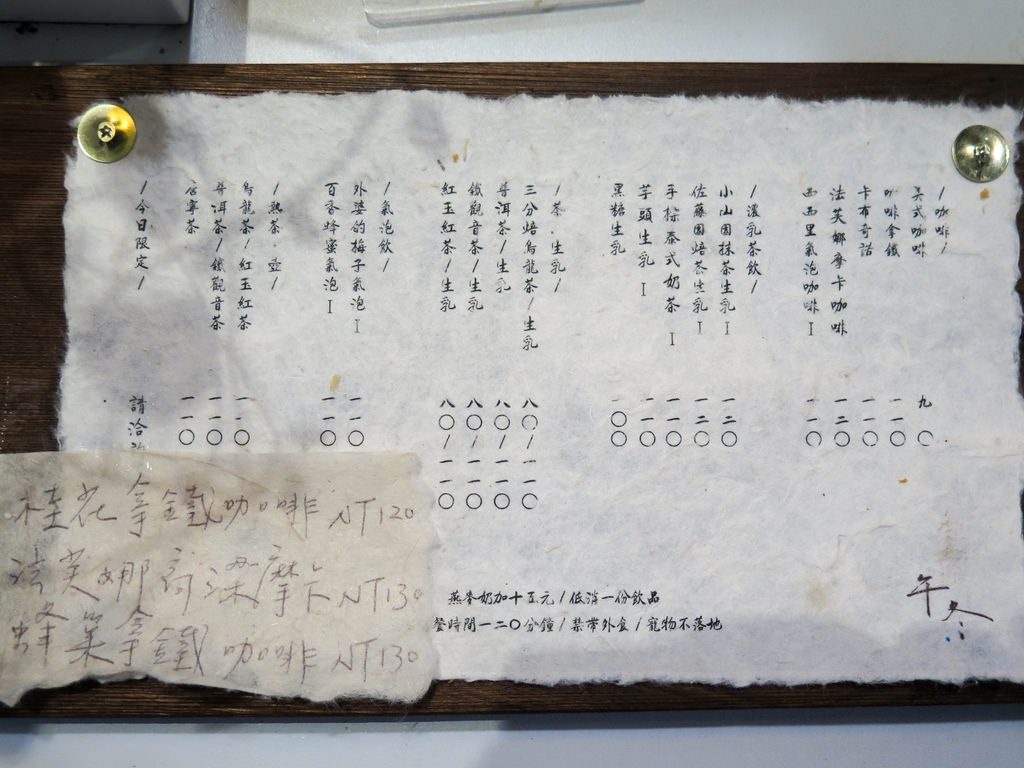 /咖啡/
美式咖啡 九〇
咖啡拿鐵 一一〇
卡布奇諾 一一〇
法芙娜摩卡咖啡 一二〇
西西里氣泡咖啡 I 一一〇
/濃乳茶飲/
小山園抹茶生乳 I 一二〇
佐藤園焙茶生乳 I 一二〇
手標泰式奶茶 I 一一〇
芋頭生乳 I 一一〇
黑糖生乳 一〇〇
/茶.生乳/
三分焙烏龍茶/生乳 八〇/一一〇
普洱茶/生乳 八〇/一一〇
鐵觀音茶/生乳 八〇/一一〇
紅玉紅茶/生乳 八〇/一一〇
/氣泡飲/
外婆的梅子氣泡 I 一一〇
百香蜂蜜氣泡 I 一一〇
/熱茶.壺/
烏龍茶/紅玉紅茶 一一〇
普洱茶/鐵觀音茶 一一〇
寧茶 一一〇
/今日限定/ 請洽
燕麥奶加十五元/低消一份飲品
餐時間一二〇分鐘/禁帶外食/寵物不落地
午冬
桂花拿鐵咖啡 NT120
法芙娜高深摩卡 NT130
蜂巢拿鐵咖啡 NT130